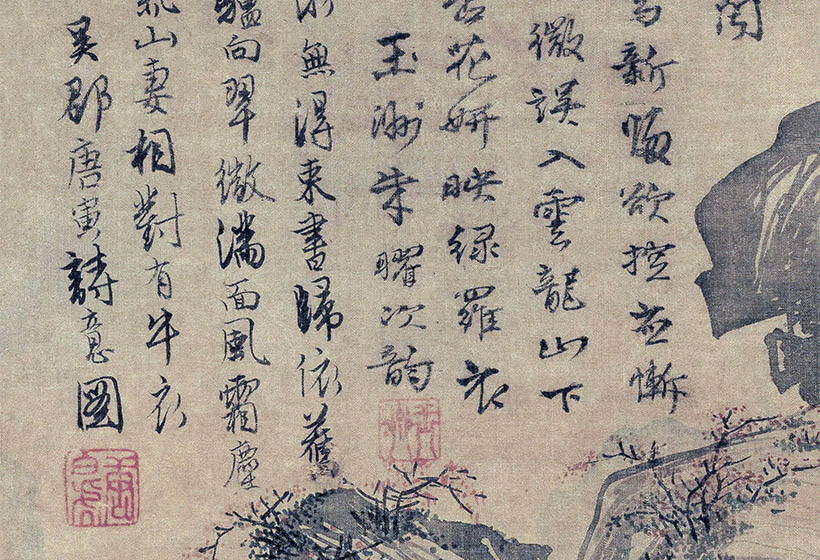 新
欲控並慚
微誤入雲龍山下
杏花妍映綠羅衣
玉洲朱曜次韵
求無得束書歸依舊
驢向翠微滿面風霜塵
氣山妻相對有牛衣
吳郡唐寅詩意圖